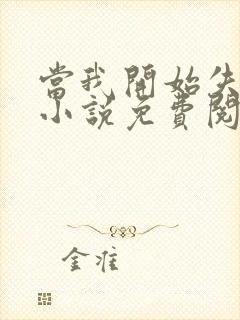 當我開始失
小說免費閱
金準